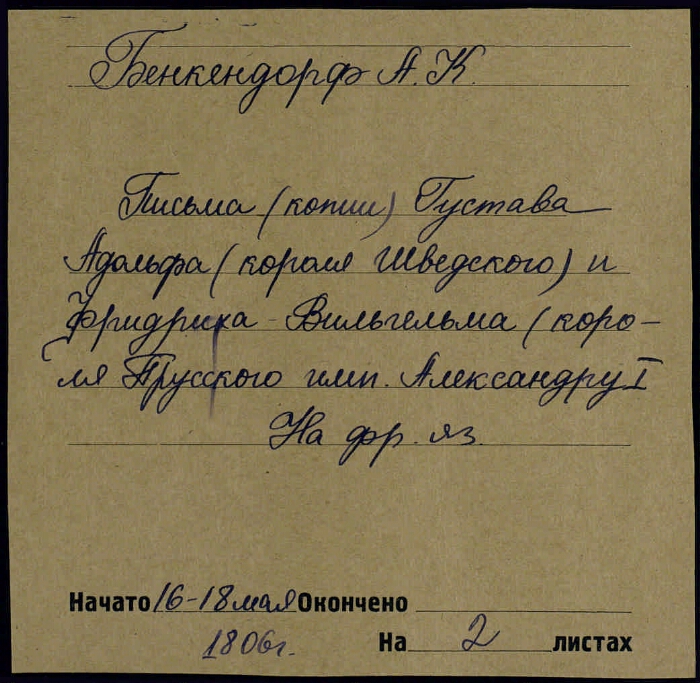 Бенкендорф А. К.
Письма (копии) Густава
Адольфа (короля Шведского) и
Фридриха-Вильгельма (коро-
ля Прусского имп. Александру I
На фр. яз.
Начато 16-18 мая Окончено
1806г. На 2 листах